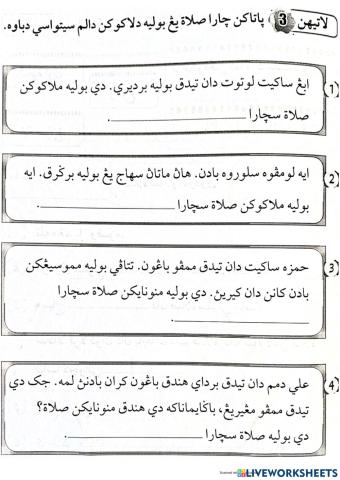 لاتيهن 3 ڽاتاكن چارا صلاة يڠ بوليه دلاكوكن دالم سيتواسي دباوه.
(1) ايڠ ساكيت لوتوت دان تيدق بوليه برديري. دي بوليه ملاكوكن
صلاة سچارا ____________.
(2) ايه لومڤوه سلوروه بادن. هاڽ ماتاڽ سهاج يڠ بوليه برݢرق. ايه
بوليه ملاكوكن صلاة سچارا ____________.
(3) حمزه ساكيت دان تيدق ممڤو باڠون. تتاڤي بوليه مموسيڠكن
بادن كانن دان كيري. دي بوليه منونايكن صلاة سچارا
____________.
(4) علي دمم دان تيدق برداي هندق باڠون كران بادنڽ لمه. جك دي
تيدق ممڤو مڠيريڠ، باݢايماناكه دي هندق منونايكن صلاة؟
دي بوليه صلاة سچارا ____________.
LIVEWORKSHEETS